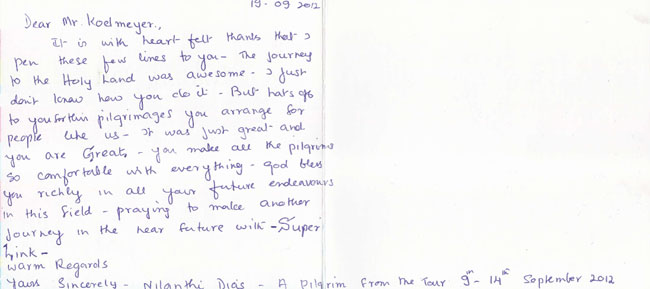 19.09 2012
Dear Mr. Koelmeyer.,
It is with heart felt thanks that I
pen these few lines to you - The journey
to the Holy Land was awesome - I just
don't know how you do it - But hats off
to you for thin pilgrimages you arrange for
people like us - It was just great and
you are Great, - you make all the pilgrims
so comfortable with everything - God bless
you richly in all your future endeavours
in this field - praying to make another
Journey in the near future with - Super
Link -
Warm Regards
Yours Sincerely - Nilanthi Dias - A Pilgrim from the Tour 9th - 14th September 2012